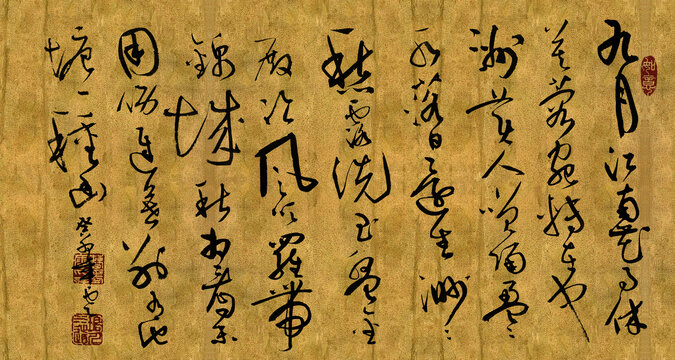 九月江南花事休
芙蓉宛转在中
洲美人笑隔盈盈
水落日还生渺渺
愁露洗玉盘金
殿冷风吹罗带
锦城秋相看未
用伤迟暮别有池
塘一种幽
如意